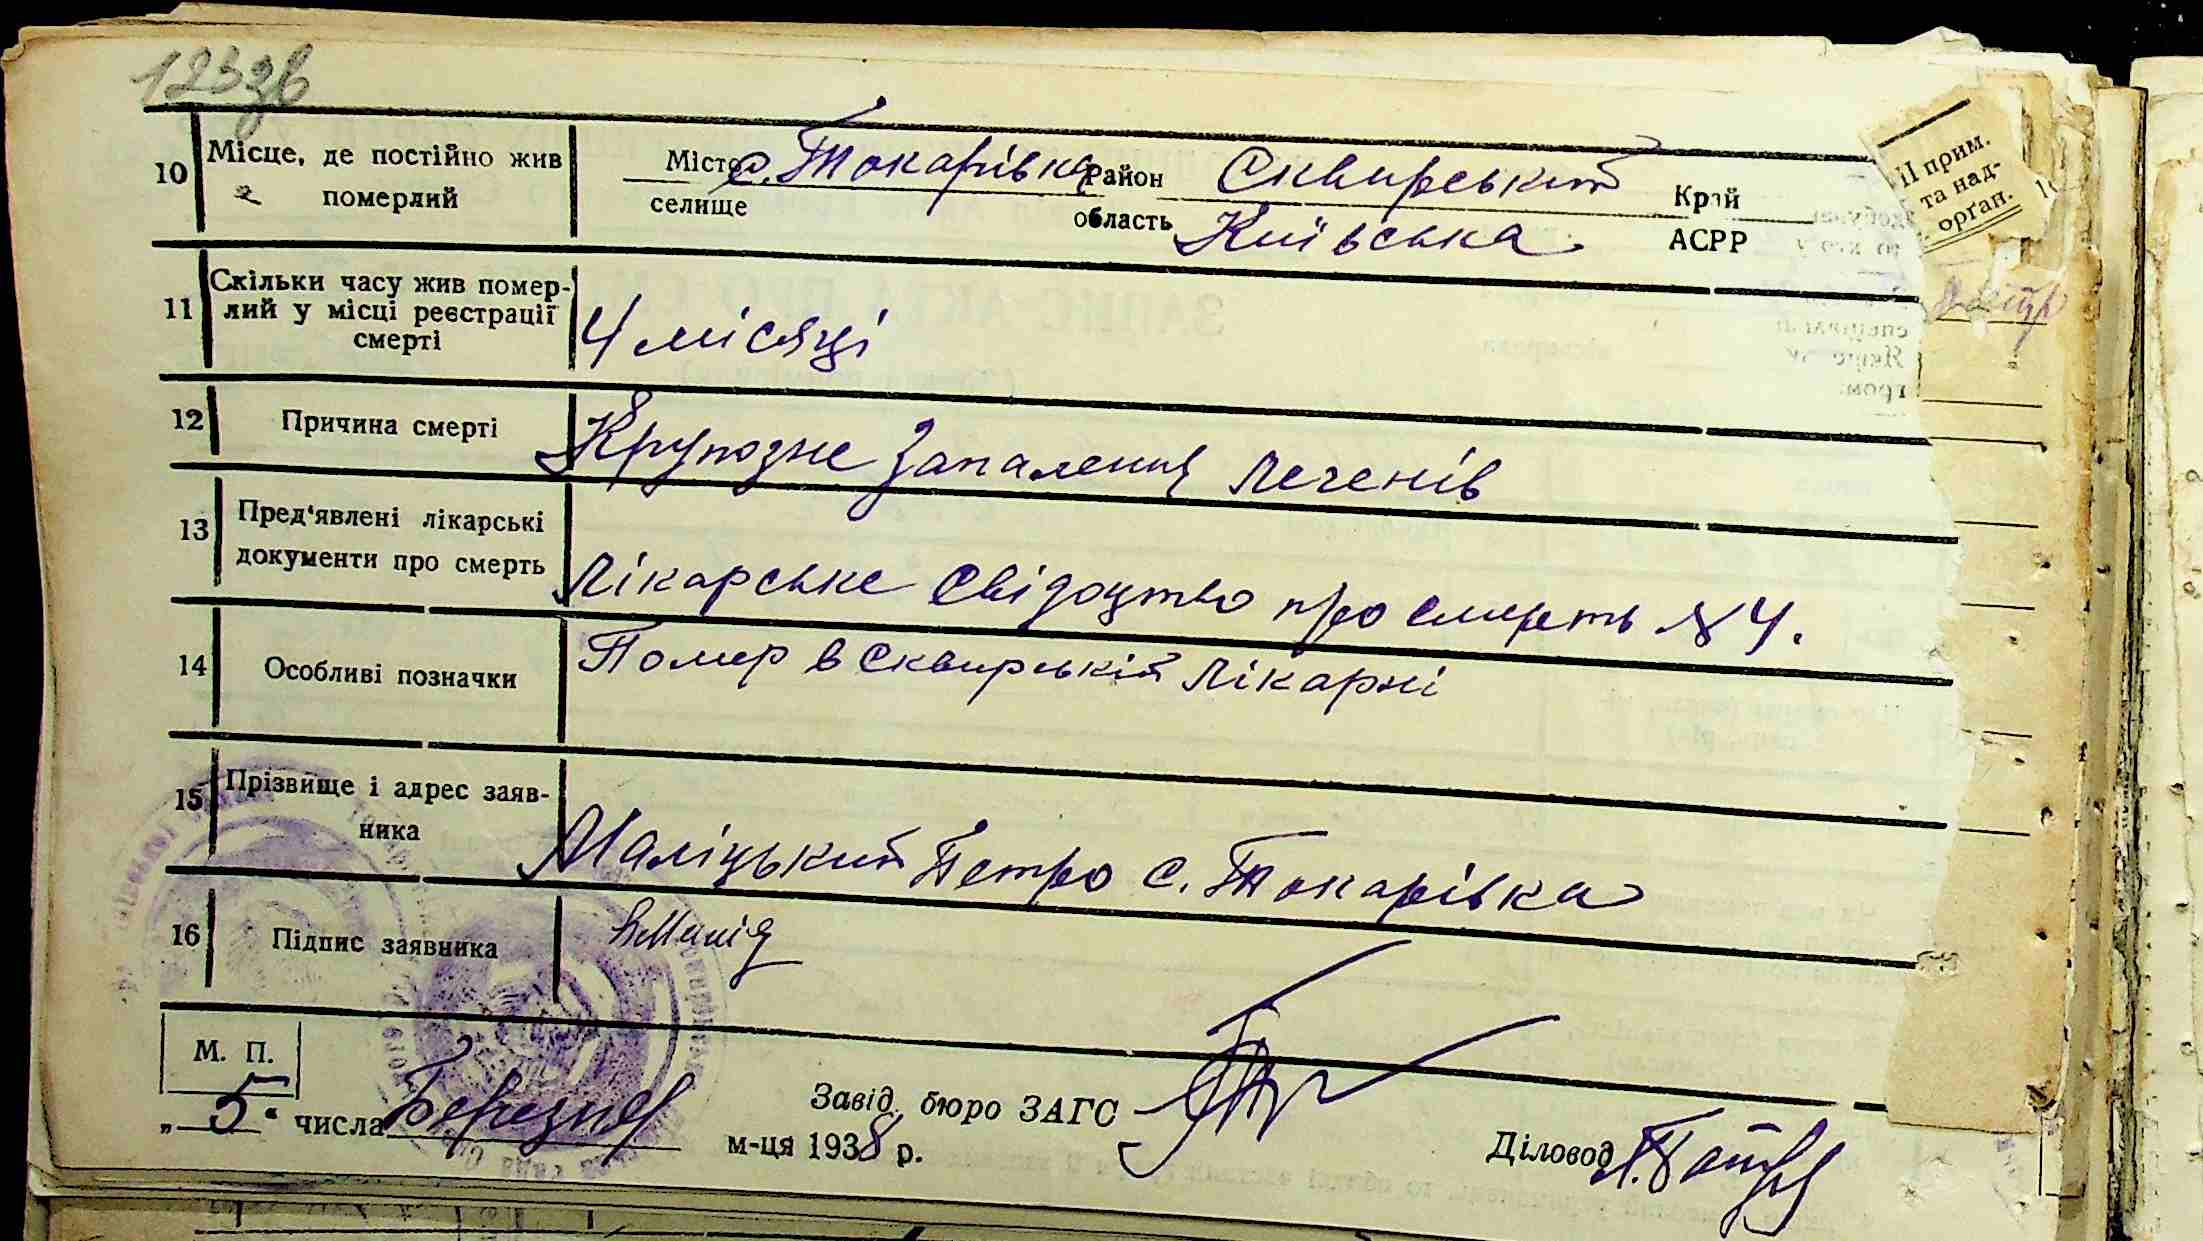 123зв
10 Місце, де постійно жив померлий Місто селище с. Токарівка Район Сквирський область Київська Край АСРР
11 Скільки часу жив померлий у місці реєстрації смерті 4 місяці
12 Причина смерті Крупозне запалення легенів
13 Пред'явлені лікарські документи про смерть Лікарське свідоцтво про смерть №4.
14 Особливі позначки Помер в Сквирській лікарні
15 Прізвище і адрес заявника Маліцький Петро с. Токарівка
16 Підпис заявника
М. П.
„5" числа Березня м-ця 1938 р.
Завід. бюро ЗАГС
Діловод
II прим.
та над-
орган.